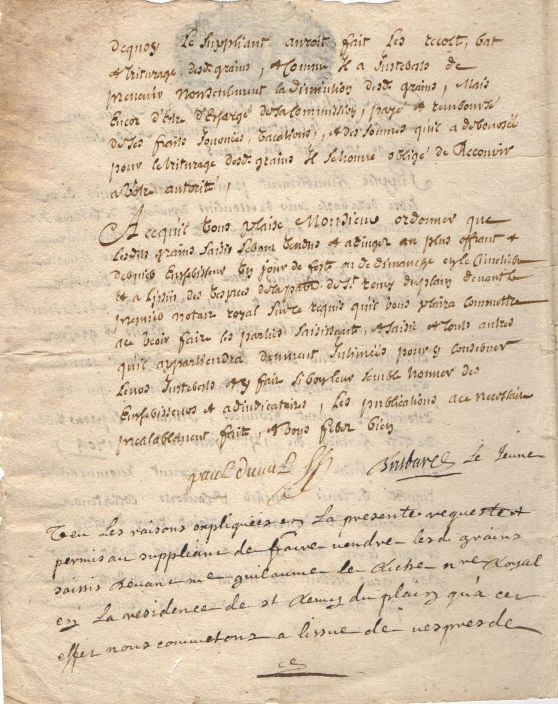 dequoy Le suppliant auroit fait Les recolt, bat
& triturage desd. grains, & comme Il a Interest de
prevenir nonseulement la diminution desd. grains, Mais
Encor d'Etre d'Esfargé de la Commission, payé & remboursé
de ses fraits Journées, vacations, & des sommes qu'il a debourcé
pour le triturage desd. grains Il se trouve obligé de Recourir
a Votre autorité,
Acequ'il vous plaise Monsieur ordonner que
Lesdits grains saisis seront vendus & adjugez au plus offrant &
dernier Enferisseur un jour de feste ou de dimanche
& a l'issue des vespres de la paroisse de St remy du plain devant le
premier notaire royal sur ce requis qu'il vous plaira commettre
ace veoir faire les parties saisissant, & saisie & touts autres
qu'il appartiendra deument Intimées pour y conserver
Leurs Interests & y fair si bon leur semble nommer des
Enferisseurs & adjudicataires, Les publications ace necessair
prealablement fait, & vous ferez bien
paul duval
Le Jeune
Veu Les raisons expliquées en La presente requeste &
permis au suppliant de faire vendre lesd. grains
saisis devant me guilaume le Riche nre Royal
en La residence de st Remy du plain qu'a cet
effet nous commetons a lissue de vespres de
ce